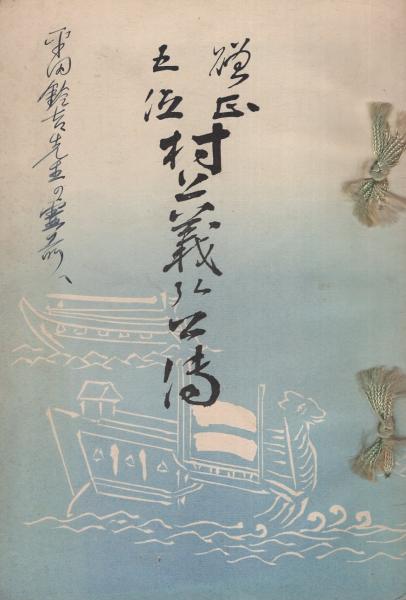 贈正
五位
村上義弘公傳
平田鈴吉先生の霊前へ